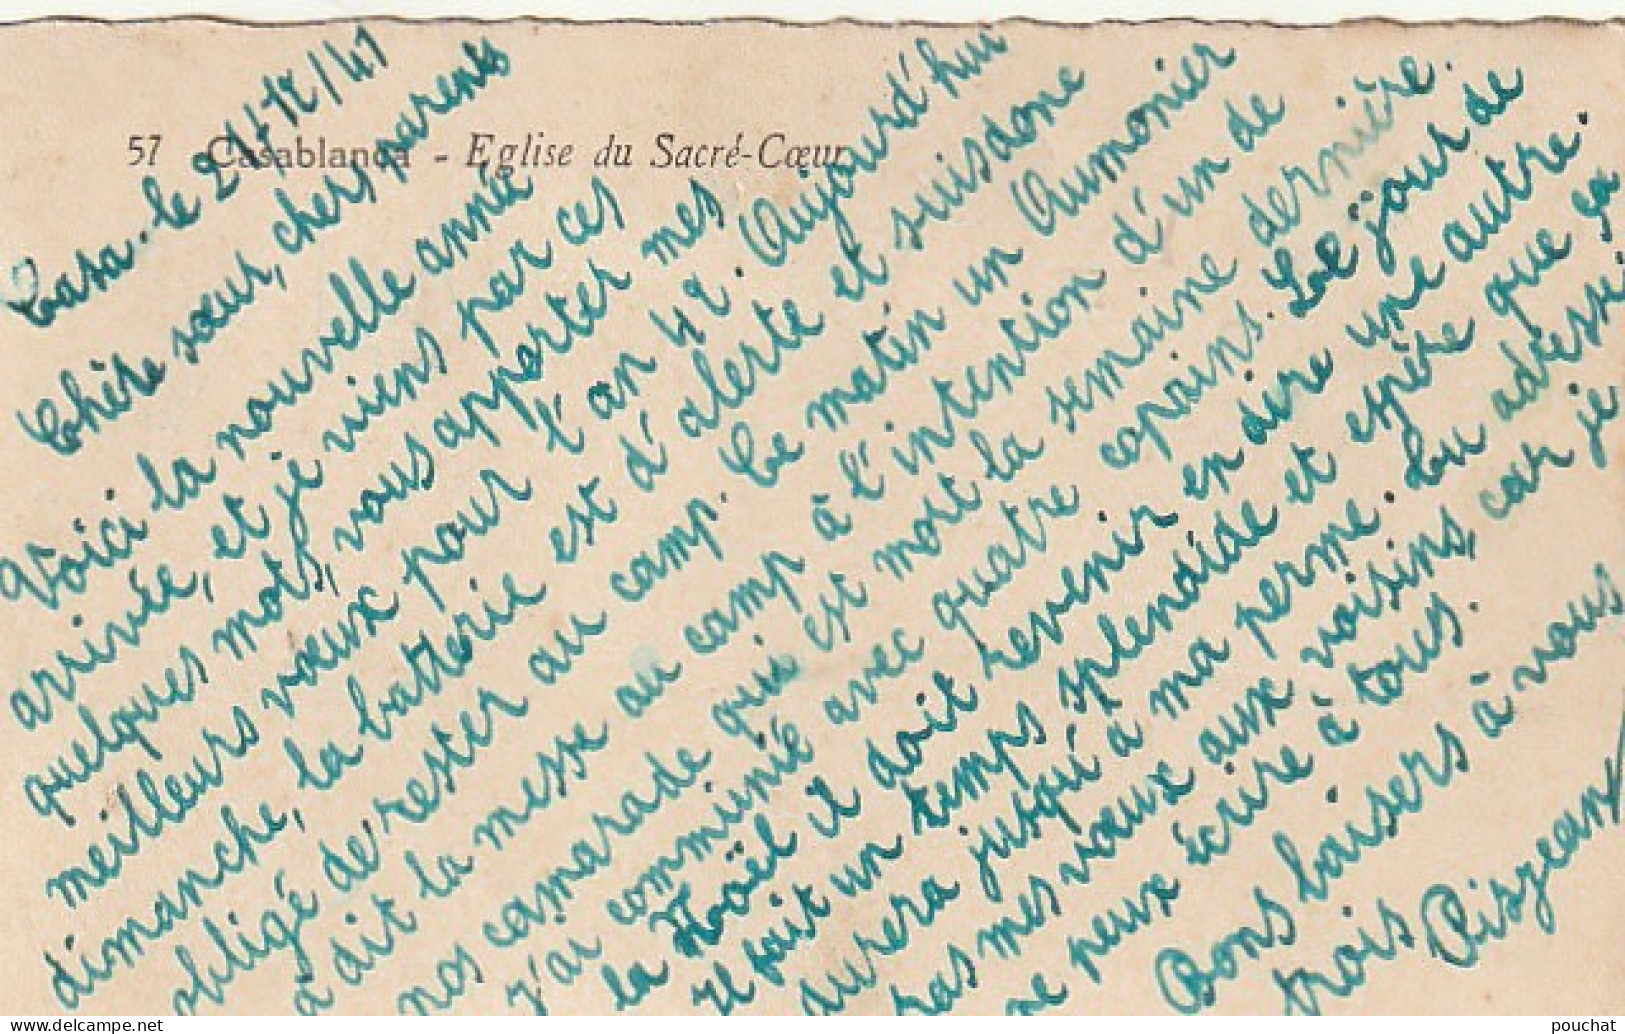 57 Casablanca - Eglise du Sacré-Cœur
Casa. le 21/12/41
Chère sœur, chers parents
Voici la nouvelle année
arrivée, et je viens par ces
quelques mots, vous apporter mes
meilleurs vœux pour l'an 42. Aujourd'hui
dimanche, la batterie est d'alerte et suis donc
obligé de rester au camp. Ce matin un Aumonier
a dit la messe au camp à l'intention d'un de
nos camarade qui est mort la semaine dernière.
j'ai communié avec quatre copains. Le jour de
la Noël il doit revenir en dire une autre.
Il fait un temps splendide et espère que ça
durera jusqu'à ma perme. Tu adresse
ras mes vœux aux voisins, car je
ne peux écrire à tous.
Bons baisers à vous
trois
pouchat